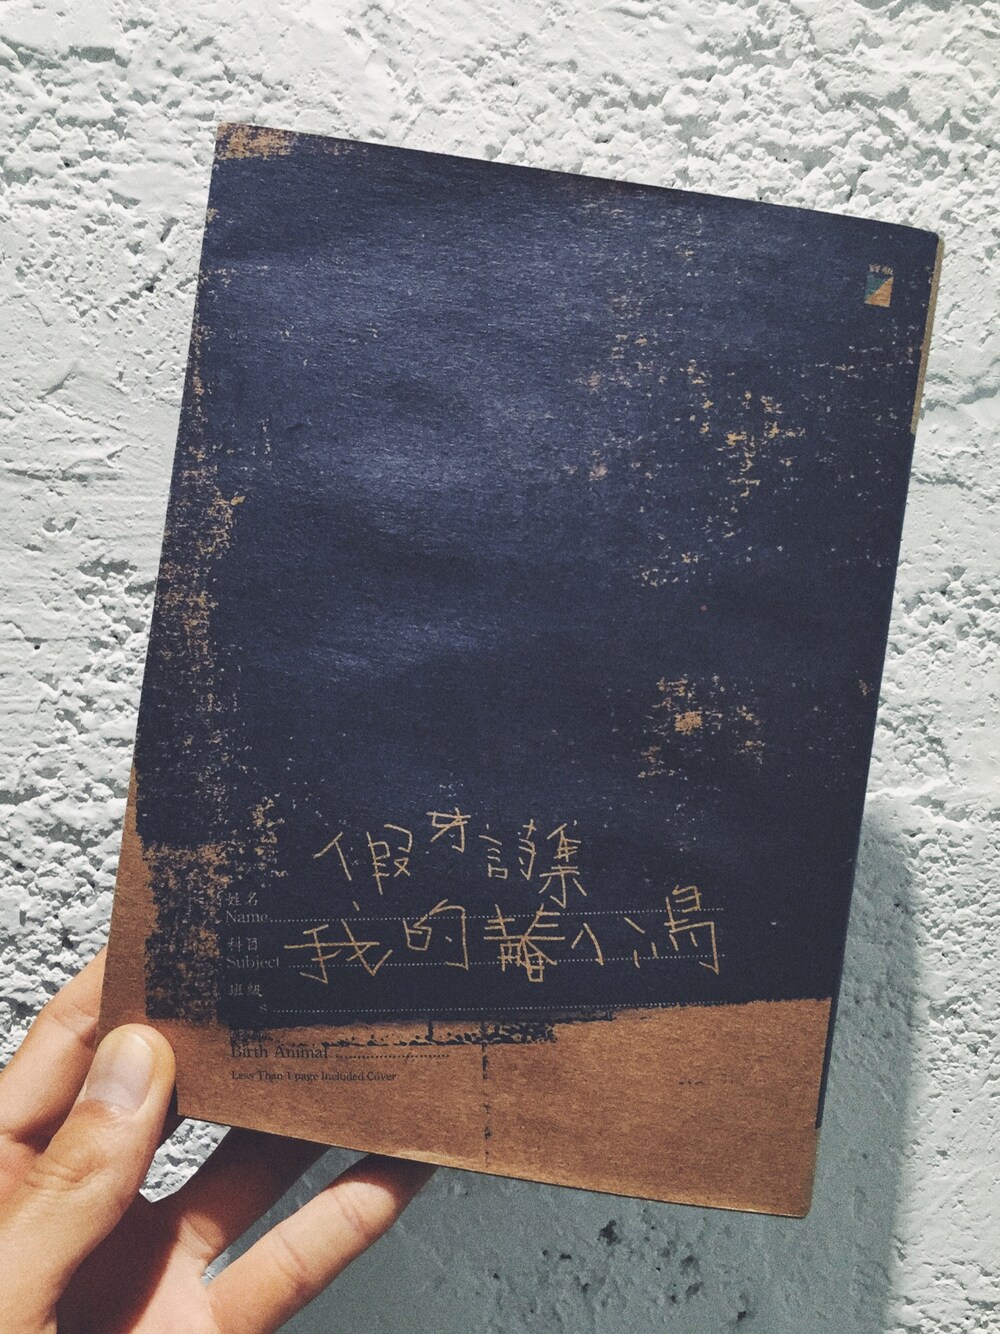 假牙詩集
姓名
Name
我的青春小鳥
科目
Subject
班級
Birth Animal
Less Than 1 page Included Cover